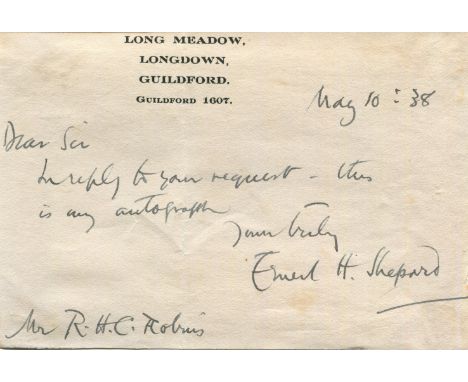 LONG MEADOW,
LONGDOWN,
GUILDFORD.
GUILDFORD 1607.
May 10 : 38
Dear Sir
In reply to your request - this
is my autograph
Yours truly
Ernest H. Shepard
Mr R. H. C.